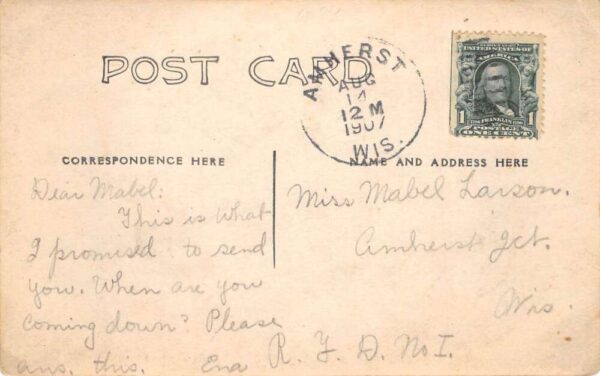 POST CARD
AMHERST
AUG
14
12 M
1907
WIS.
UNITED STATES OF AMERICA
1 FRANKLIN 1
POSTAGE
ONE CENT
CORRESPONDENCE HERE
NAME AND ADDRESS HERE
Dear Mabel:
This is what
I promised to send
you. When are you
coming down? Please
ans. this. Ena
Miss Mabel Larson.
Amherst Jct.
Wis.
R. F. D. No I.